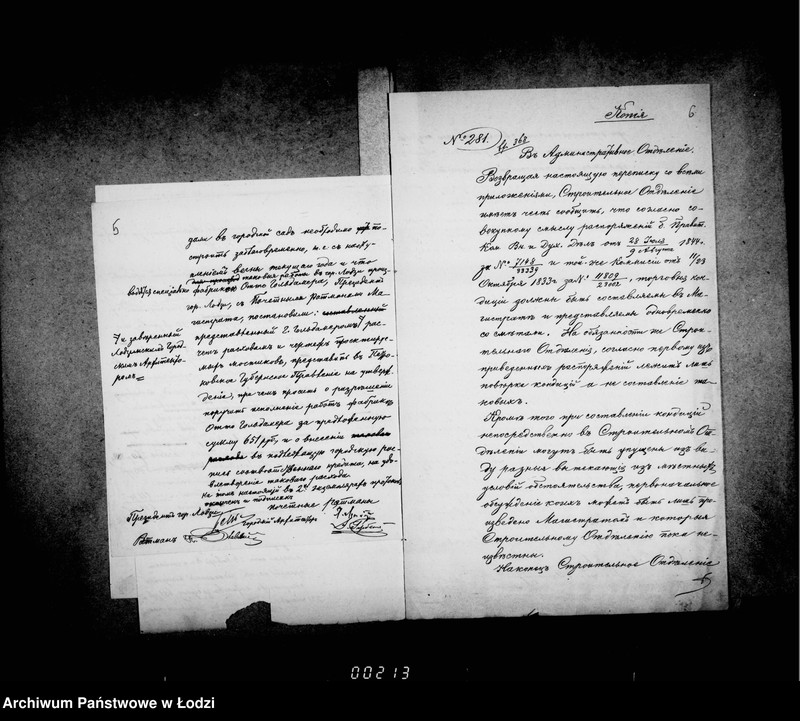 5
дам въ городской садъ необходимо
строить заблаговременно, т. е. къ насту-
пленію весны текущаго года и что
фабрикою Отто Гольдамера, Президентъ
гор. Лодзи, съ Почетными Ратманами Ма-
гистрата, постановили:
представленный Г. Гольдамеромъ рас-
четъ расходамъ и чертежъ проектируе-
мыхъ мостиковъ, представить въ Петро-
ковское Губернское Правленіе на утверж-
деніе, при чемъ просить о разрѣшеніи
поручить исполненіе работъ фабрикѣ
Отто Гольдамера за предложенную
сумму 651 руб, и о внесеніи
въ подлежащую городскую рос-
пись соотвѣтственнаго кредита, на удо-
влетвореніе таковаго расхода.
На томъ настоящій въ 2хъ экземплярахъ протоколъ
оконченъ и подписанъ
и завѣренный
Лодзинскимъ Город-
скимъ Архитекто-
ромъ
Президентъ гор. Лодзи
почетные Ратманы
Городской Архитекторъ
Ратманъ
Копія
6
№ 281.
Въ Административное Отдѣленіе.
Возвращая настоящую переписку со всѣми
приложеніями, Строительное Отдѣленіе
имѣетъ честь сообщить, что согласно со-
вокупному смыслу распоряженій б. Правит.
Ком Вн и Дух. Дѣлъ отъ 28 Іюля / 9 Августа 1844 г.
за № 7148 / 33339 и той-же Комисіи отъ 11/23
Октября 1833 г. за № 11809 / 23002 торговыя кон-
диціи должны быть составляемы въ Ма-
гистратѣ и представляемы одновременно
со смѣтами. На обязанности же Строи-
тельнаго Отдѣленія, согласно первому изъ
приведенныхъ распоряженій лежитъ лишь
повѣрка кондицій а не составленіе та-
ковыхъ.
Кромѣ того при составленіи кондицій
непосредственно въ Строительномъ От-
дѣленіи могутъ быть упущены изъ ви-
ду разныя вытекающія изъ мѣстныхъ
условій обстоятельства, первоначальное
обсужденіе коихъ можетъ быть лишь про-
изведено Магистратомъ и которыя
Строительному Отдѣленію пока не-
извѣстны.
Наконецъ Строительное Отдѣленіе
00213
Archiwum Państwowe w Łodzi